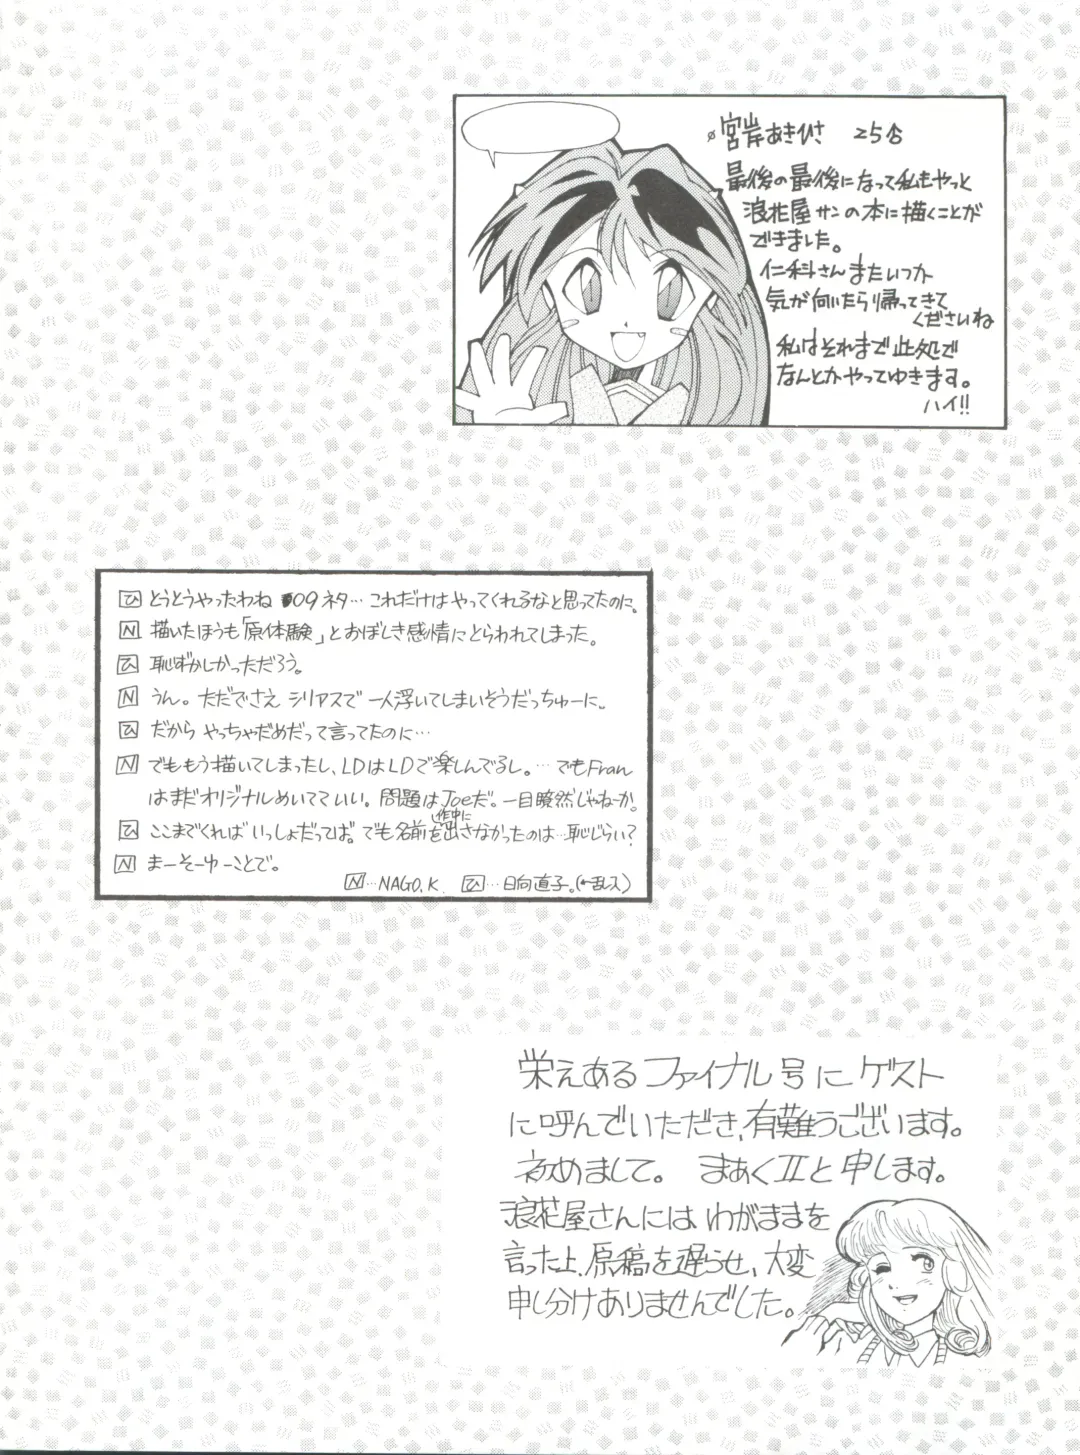 宮岸あきひさ 25才
最後の最後になって私もやっと
浪花屋サンの本に描くことが
できました。
仁科さんまたいつか
気が向いたら帰ってきて
くださいね
私はそれまで此処で
なんとかやってゆきます。
ハイ!!
ひ とうとうやったわね 009ネタ… これだけはやってくれるなと思ってたのに。
N 描いたほうも「原体験」とおぼしき感情にとらわれてしまった。
ひ 恥ずかしかっただろう。
N うん。ただでさえ シリアスで 一人浮いてしまいそうだっちゅーに。
ひ だから やっちゃだめだって言ってたのに…
N でももう描いてしまったし、LDはLDで楽しんでるし。… でもFran
はまだオリジナルめいてていい。問題はJoeだ。一目瞭然じゃねーか。
ひ ここまでくれば いっしょだってば。でも作中に名前を出さなかったのは…恥じらい?
N まーそーゆーことで。
N…NAGO.K. ひ…日向直子。(←乱入)
栄えあるファイナル号にゲスト
に呼んでいただき、有難うございます。
初めまして。 まぁくIIと申します。
浪花屋さんには、わがままを
言った上、原稿を遅らせ、大変
申し分けありませんでした。